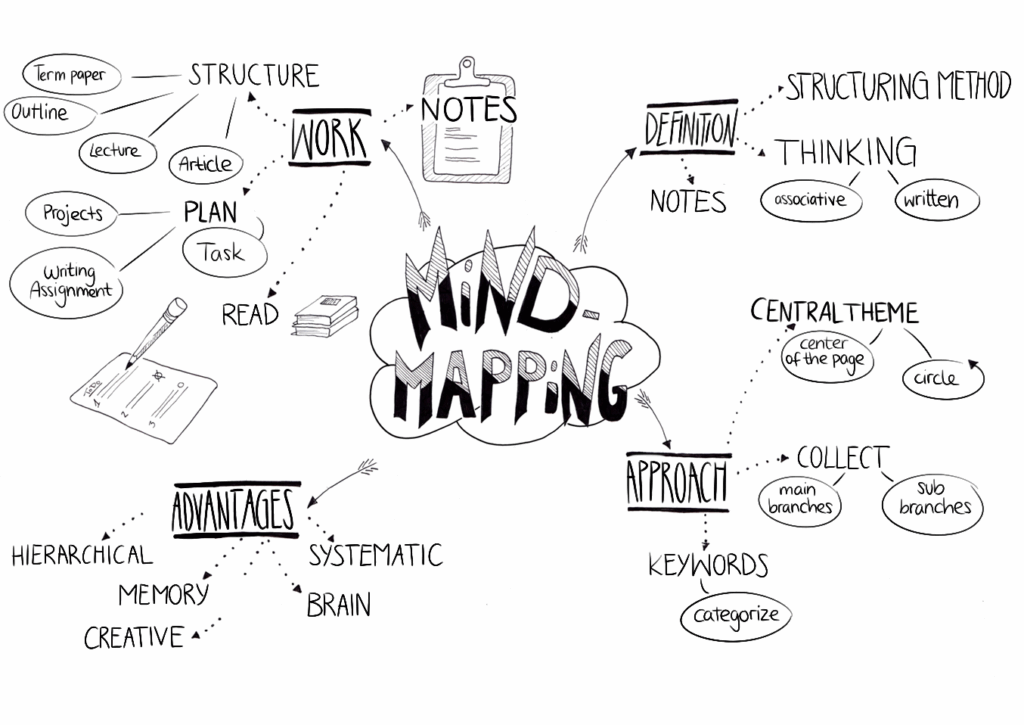 MiND-
MAPPiNG
WORK
STRUCTURE
Term paper
Outline
Lecture
Article
NOTES
PLAN
Projects
Task
Writing
Assignment
READ
To Do
1
2
3
DEFINITION
STRUCTURING METHOD
THINKING
associative
written
NOTES
APPROACH
CENTRAL THEME
center
of the page
circle
COLLECT
main
branches
sub
branches
KEYWORDS
categorize
ADVANTAGES
HIERARCHICAL
MEMORY
CREATIVE
SYSTEMATIC
BRAIN